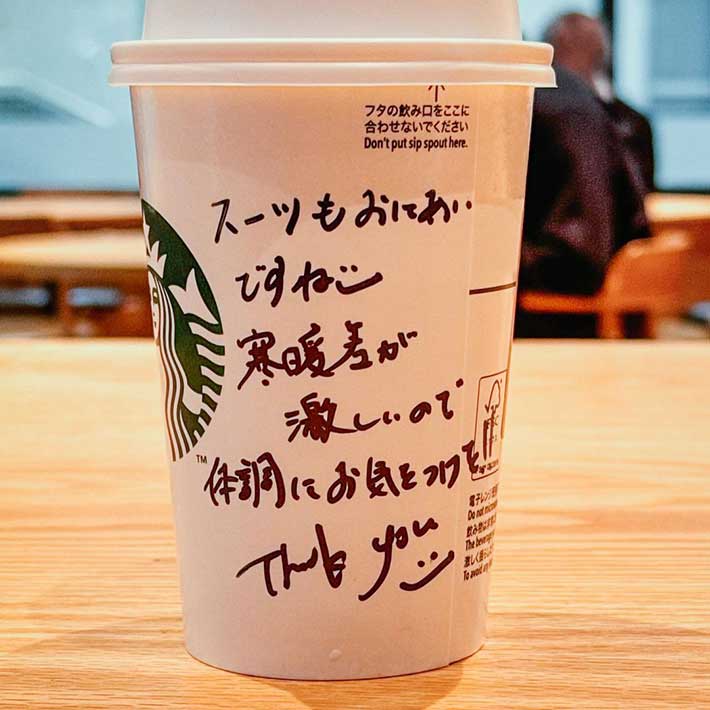 フタの飲み口をここに
合わせないでください
Don't put sip spout here.
スーツもおにあい
ですね
寒暖差が
激しいので
体調にお気をつけを
Thank you
TM
電子レンジ
Do not
飲み物は
The beverage
激しく
To avoid